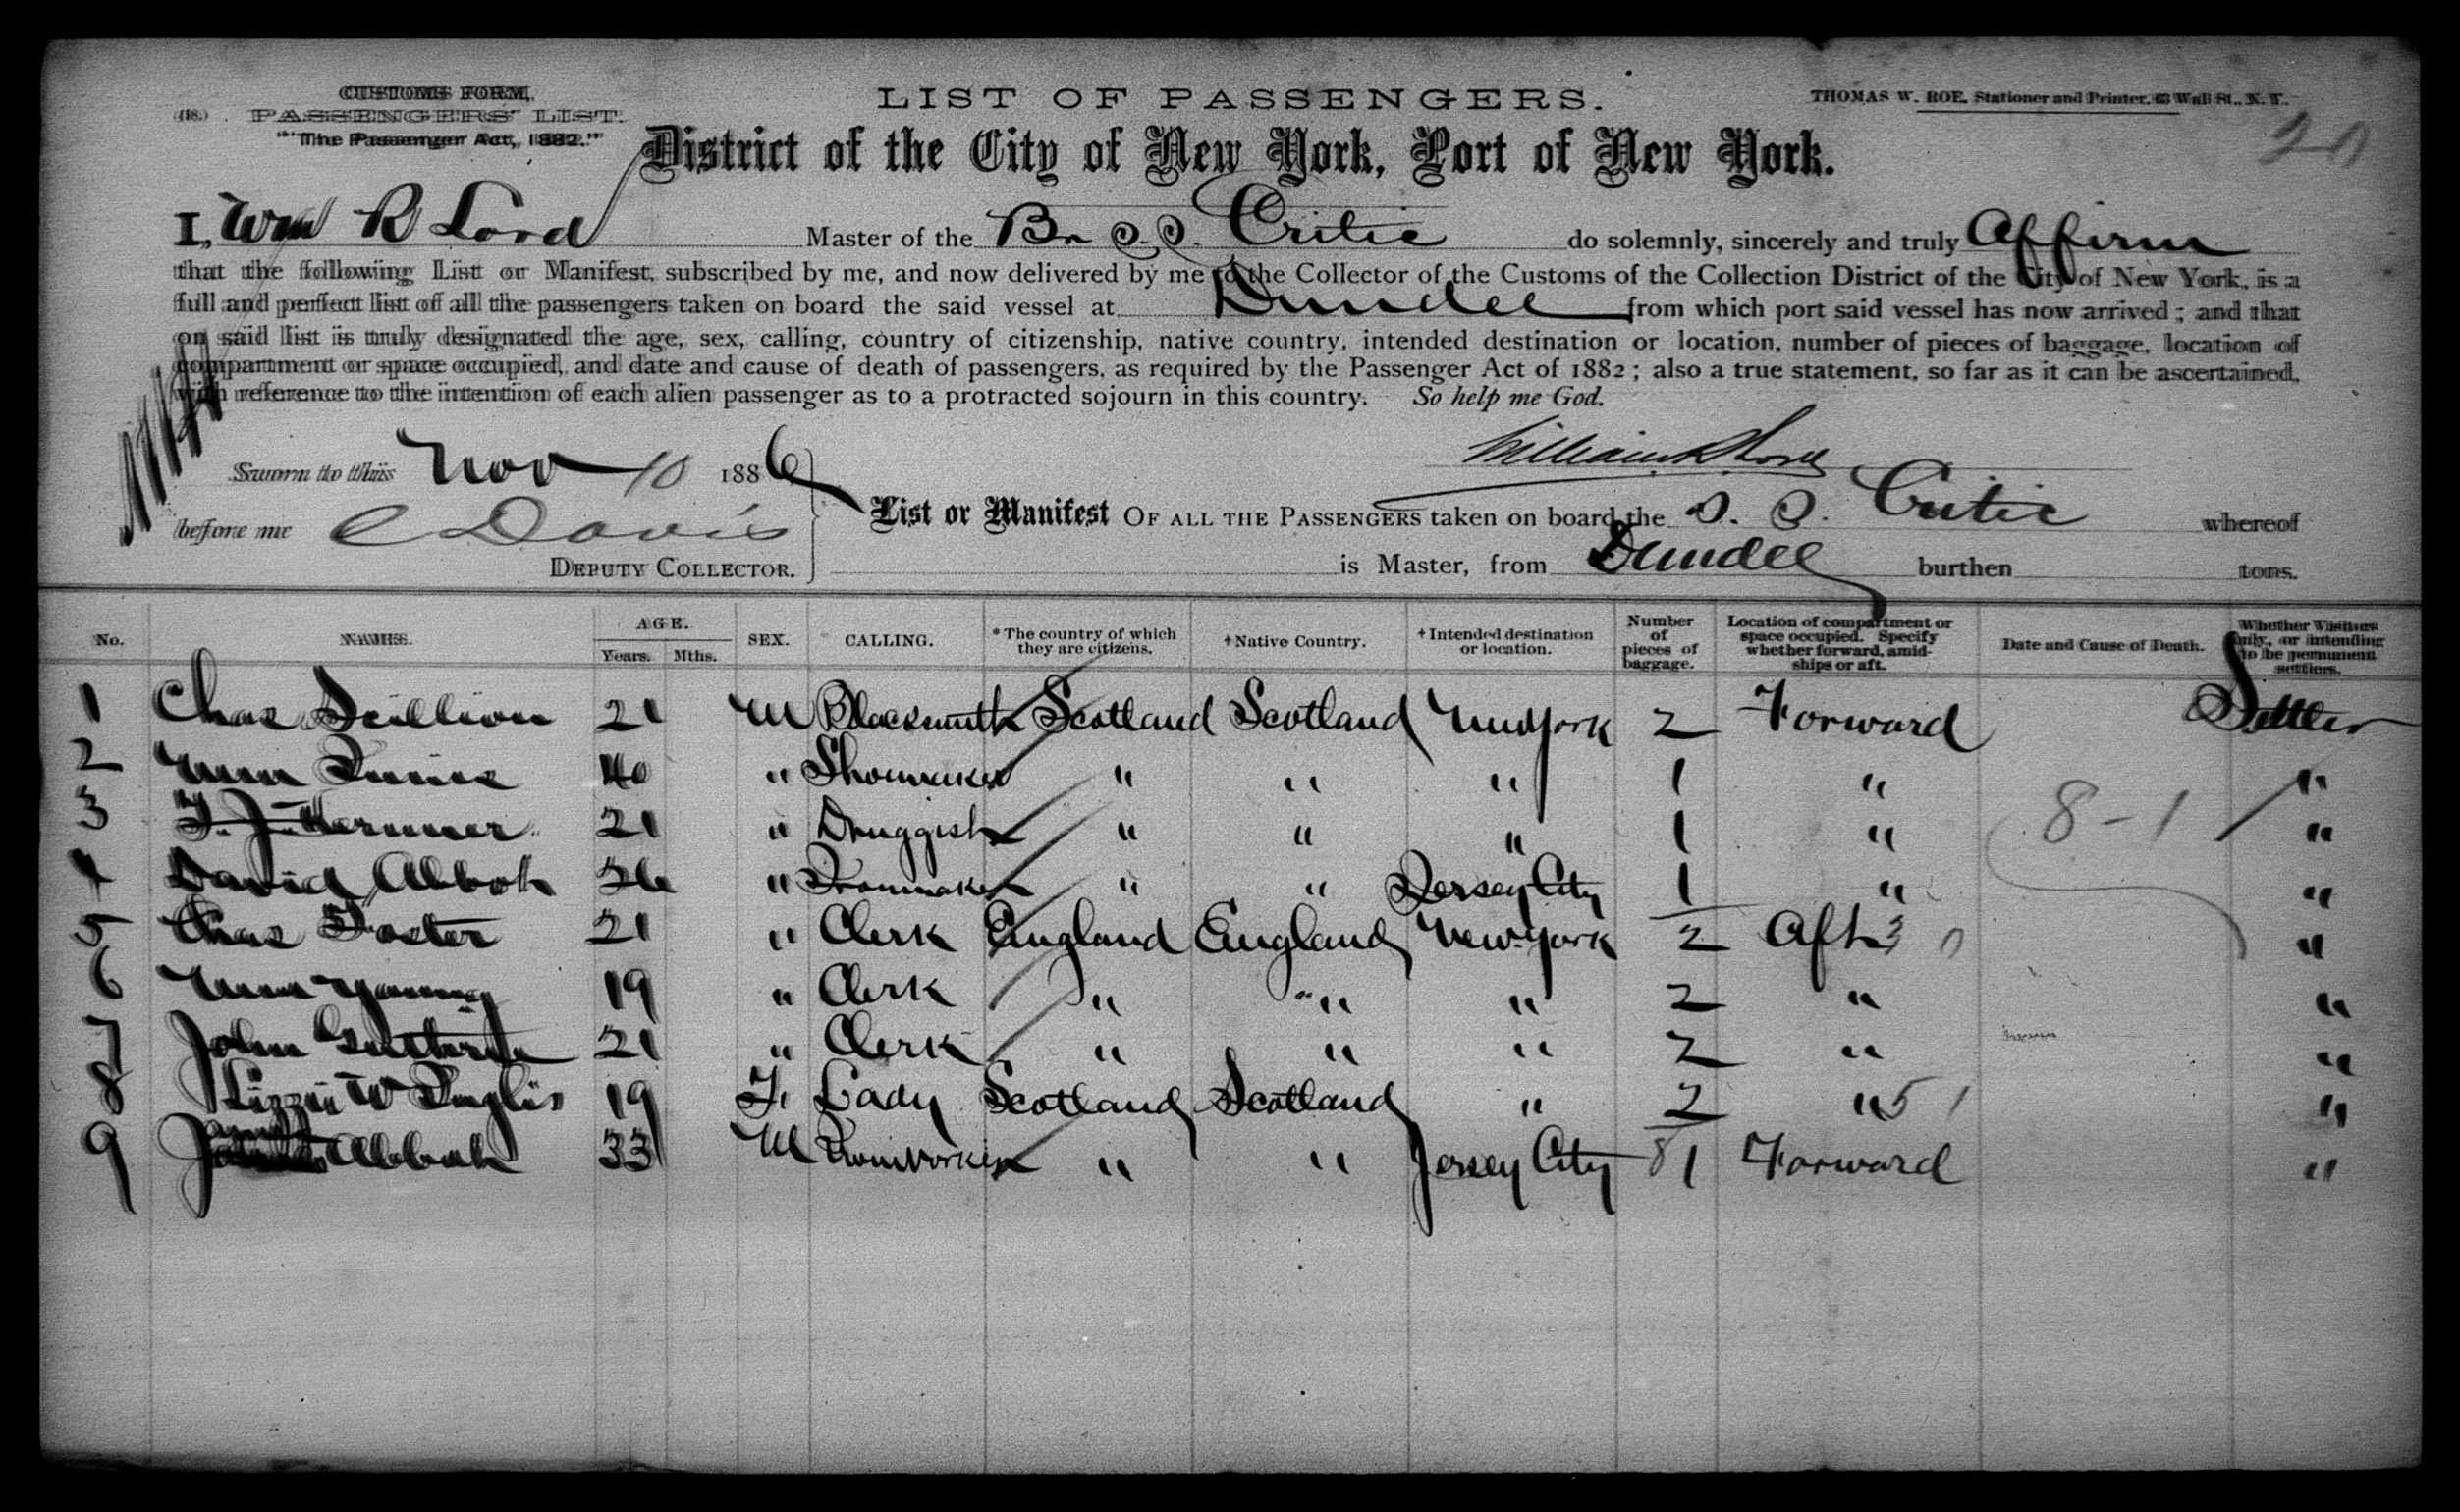 CUSTOMS FORM,
(18.) PASSENGERS' LIST.
"The Passenger Act, 1882."
LIST OF PASSENGERS.
THOMAS W. ROE, Stationer and Printer, 63 Wall St., N. Y.
20
District of the City of New York, Port of New York.
I, Wm R Lord Master of the Br S.S. Critic do solemnly, sincerely and truly Affirm
that the following List or Manifest, subscribed by me, and now delivered by me to the Collector of the Customs of the Collection District of the City of New York, is a
full and perfect list of all the passengers taken on board the said vessel at Dundee from which port said vessel has now arrived; and that
on said list is truly designated the age, sex, calling, country of citizenship, native country, intended destination or location, number of pieces of baggage, location of
compartment or space occupied, and date and cause of death of passengers, as required by the Passenger Act of 1882; also a true statement, so far as it can be ascertained,
with reference to the intention of each alien passenger as to a protracted sojourn in this country. So help me God.
Sworn to this Nov 10 1886
William R Lord
before me C Davis
DEPUTY COLLECTOR.
List or Manifest OF ALL THE PASSENGERS taken on board the S. S. Critic whereof
is Master, from Dundee burthen tons.
No. NAMES. AGE. Years. Mths. SEX. CALLING. * The country of which they are citizens. † Native Country. † Intended destination or location. Number of pieces of baggage. Location of compartment or space occupied. Specify whether forward, amidships or aft. Date and Cause of Death. Whether Visitors only, or intending to be permanent settlers.
1 Chas Scullion 21 M Blacksmith Scotland Scotland New York 2 Forward Settler
2 Wm 40 " Shoemaker " " " 1 " "
3 21 " Druggist " " " 1 " 8-1 "
4 David Abbot 26 " " " Jersey City 1 " "
5 Chas Foster 21 " Clerk England England New York 2 Aft 3 0 "
6 Wm Young 19 " Clerk " " " 2 " "
7 John Guthrie 21 " Clerk " " " 2 " "
8 Lizzie W Inglis 19 F. Lady Scotland Scotland " 2 " 5 1 "
9 Abbot 33 M Ironworker " " Jersey City 8 1 Forward "